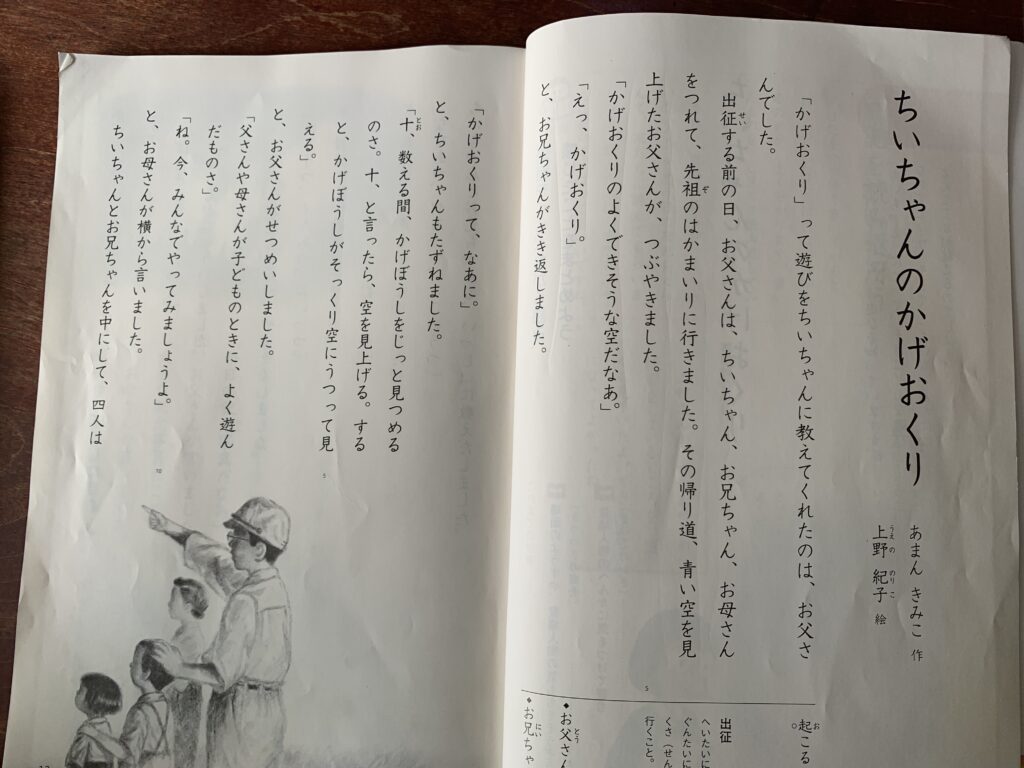 ちいちゃんのかげおくり
あまん きみこ 作
上野 紀子 絵
うえの のりこ
「かげおくり」って遊びをちいちゃんに教えてくれたのは、お父さ
んでした。
出征する前の日、お父さんは、ちいちゃん、お兄ちゃん、お母さん
せい
をつれて、先祖のはかまいりに行きました。その帰り道、青い空を見
ぞ
上げたお父さんが、つぶやきました。
「かげおくりのよくできそうな空だなあ。」
「えっ、かげおくり。」
と、お兄ちゃんがきき返しました。
5
起こる
お
出征
へいたいに
ぐんたいに
くさ(せん
行くこと。
◆お父さん
とう
◆お兄ちゃ
にい
「かげおくりって、なあに。」
と、ちいちゃんもたずねました。
「十、数える間、かげぼうしをじっと見つめる
とお
のさ。十、と言ったら、空を見上げる。する
と、かげぼうしがそっくり空にうつって見
える。」
と、お父さんがせつめいしました。
「父さんや母さんが子どものときに、よく遊ん
だものさ。」
「ね。今、みんなでやってみましょうよ。」
と、お母さんが横から言いました。
ちいちゃんとお兄ちゃんを中にして、四人は
5
10